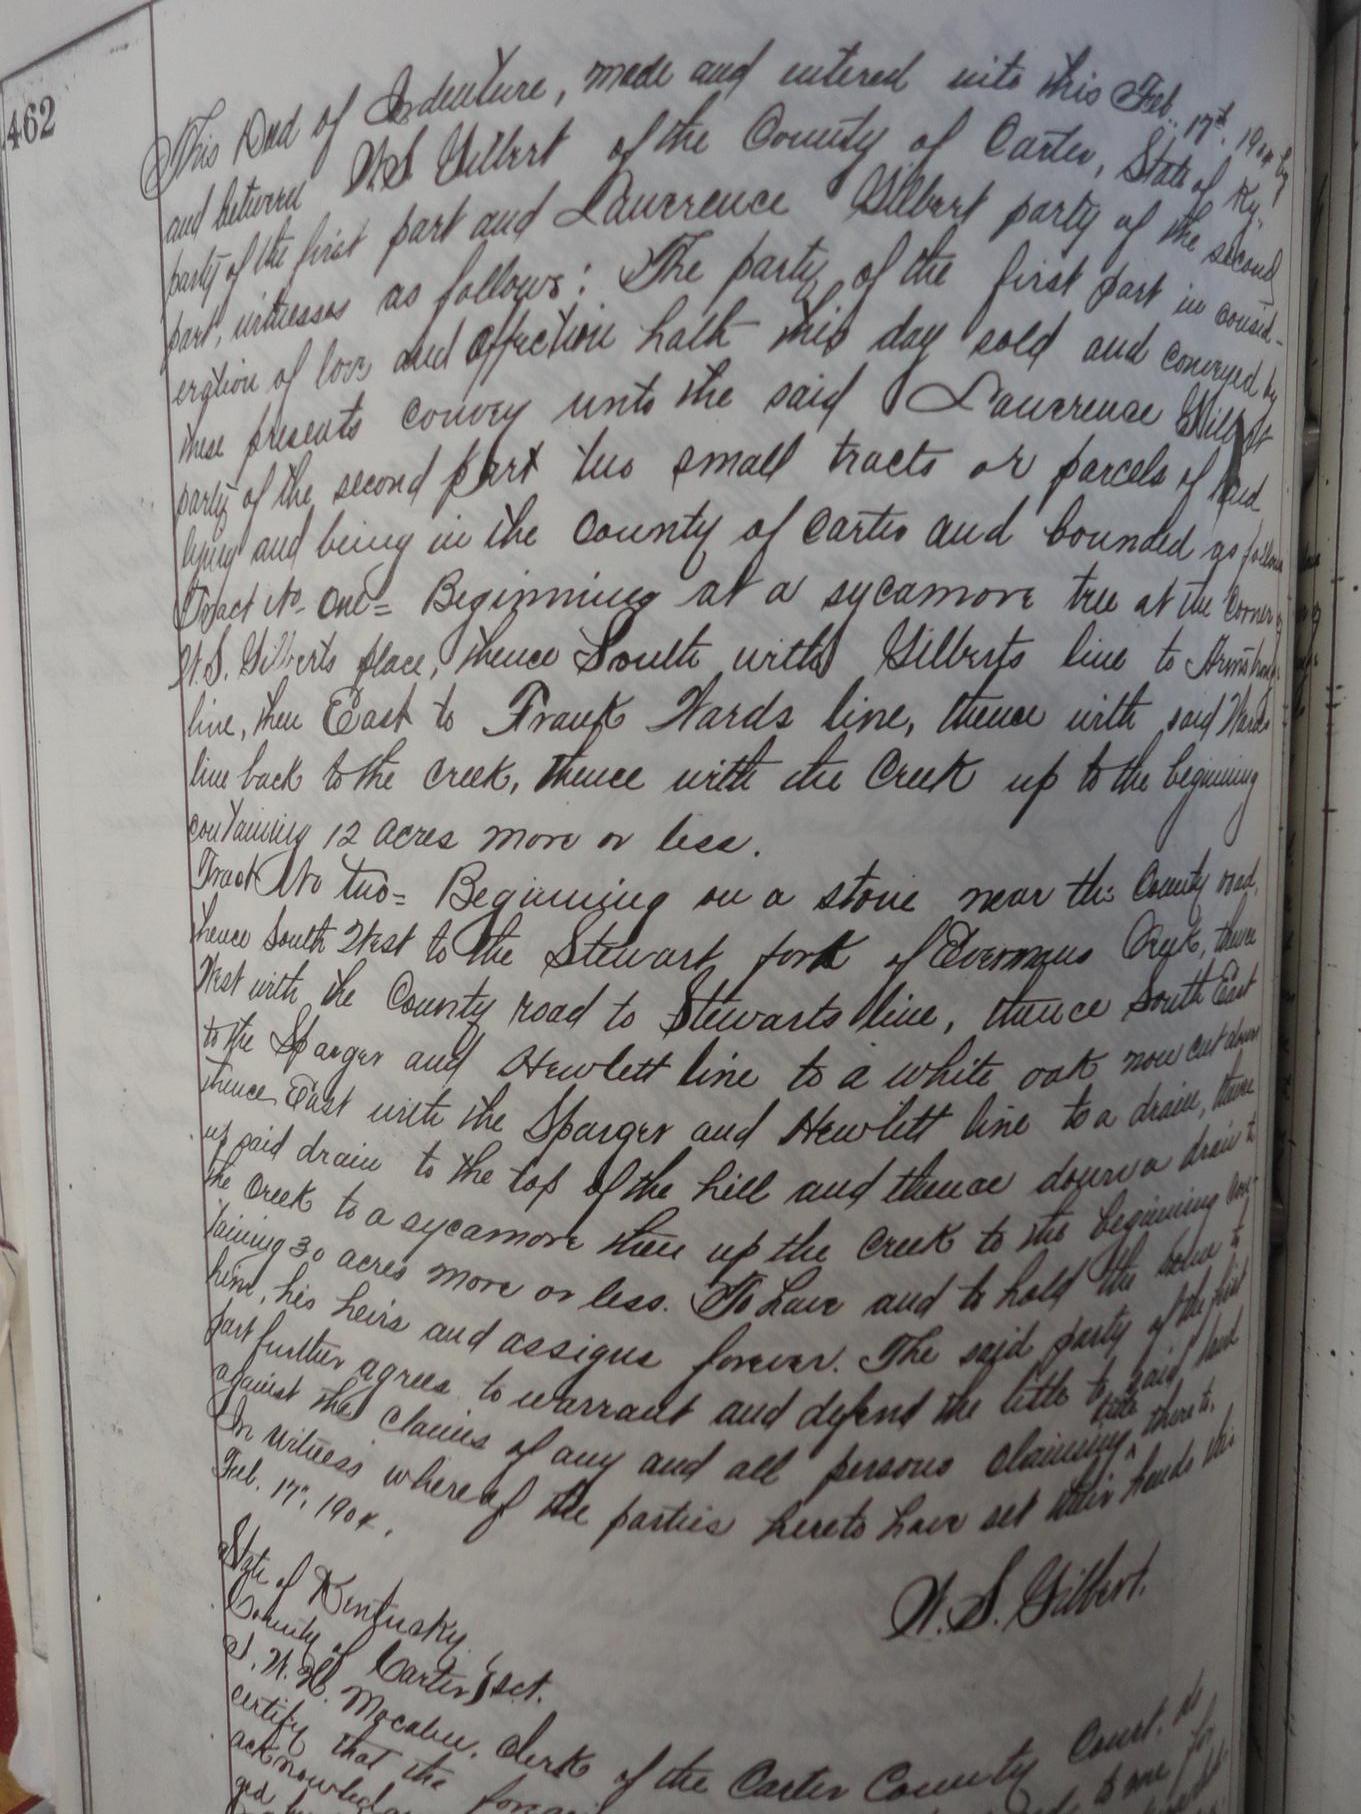 462
This Deed of Indenture, made and entered into this Feb. 17th. 1904 by
and between W.S Gilbert of the County of Carter, State of Ky.
party of the first part and Lawrence Gilbert party of the second
part, witnesses as follows: The party of the first part in consid-
eration of love and affection hath this day sold and conveyed by
these presents convey unto the said Lawrence Gilbert
party of the second part two small tracts or parcels of land
lying and being in the County of Carter and bounded as follows
Tract No- One= Beginning at a sycamore tree at the corner of
W.S. Gilberts place, thence South with Gilberts line to Armstrongs
line, then East to Frank Wards line, thence with said Wards
line back to the creek, thence with the Creek up to the begining
containing 12 acres more or less.
Tract No two= Beginning on a stone near the County road,
thence South West to the Stewart fork of Evermans Creek, thence
West with the County road to Stewarts line, thence South East
to the Sparger and Hewlett line to a white oak now cut down
thence East with the Sparger and Hewlett line to a drain, thence
up said drain to the top of the hill and thence down a drain to
the Creek to a sycamore then up the Creek to the beginning con-
taining 30 acres more or less. To have and to hold the same to
him, his heirs and assigns forever. The said party of the first
part further agrees to warrant and defend the title to said land
against the claims of any and all persons claiming title thereto.
In witness whereof the parties hereto have set their hands this
Feb. 17", 1904.
W. S. Gilbert.
State of Kentucky
County of Carter } sct.
I. W. H. Mccabee. Clerk of the Carter County Court. do
certify that the to me for
acknowledg
ged